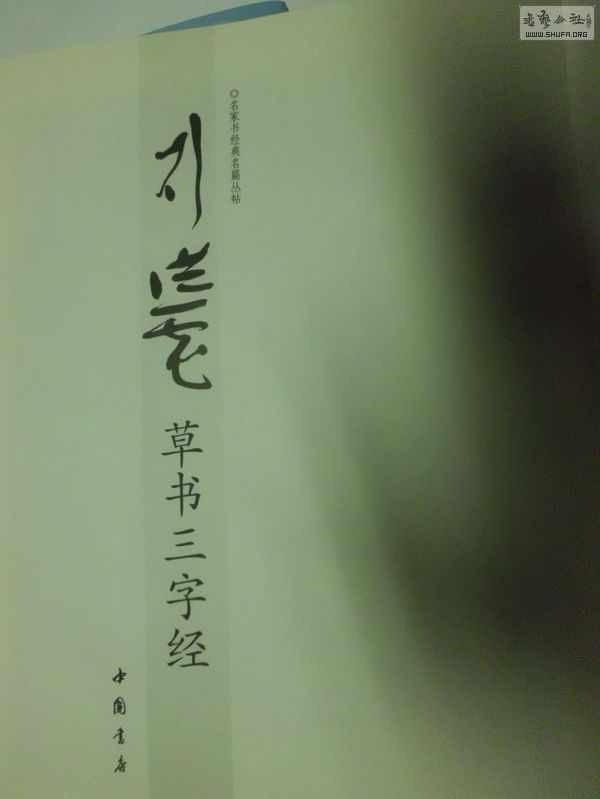 書藝公社
WWW.SHUFA.ORG
◎名家书经典名篇丛帖
草书三字经
中国书店